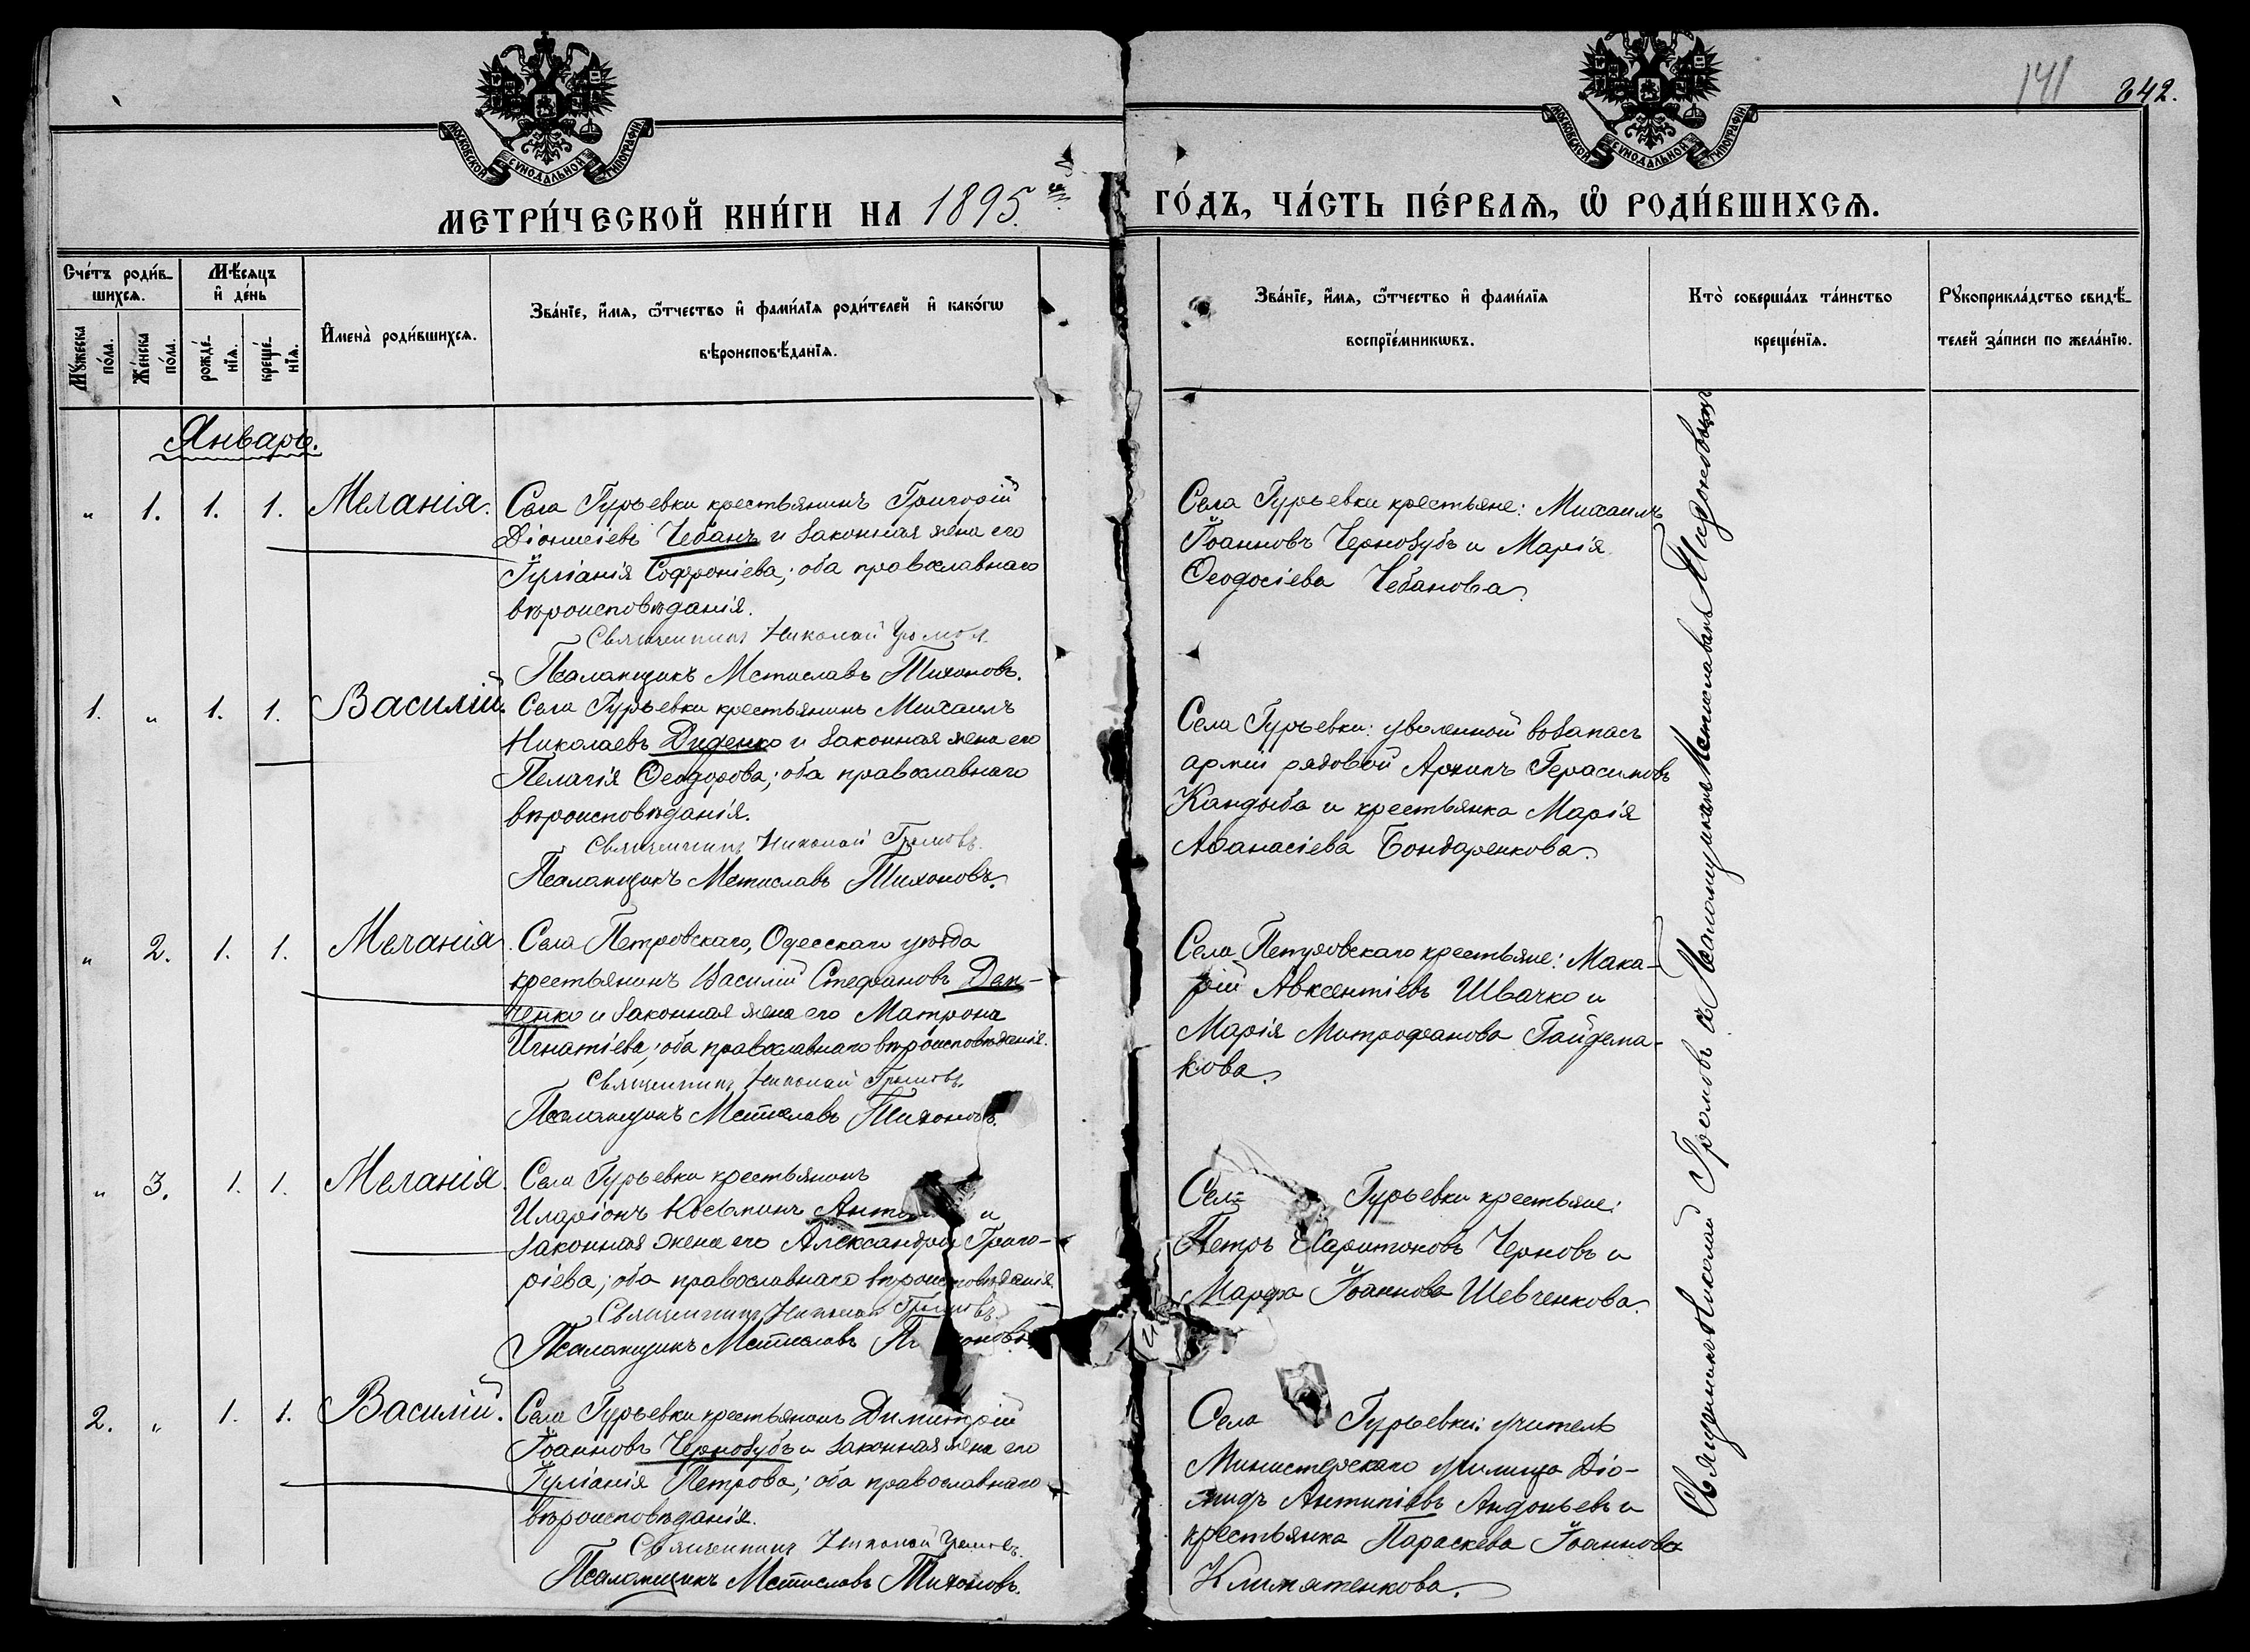 141 242.
МОСКОВСКОЙ СѴНОДАЛЬНОЙ ТИПОГРАФІИ
МОСКОВСКОЙ СѴНОДАЛЬНОЙ ТИПОГРАФІИ
МЕТРИ́ЧЕСКОЙ КНИ́ГИ НА 1895. ГО́ДЪ, ЧА́СТЬ ПЕ́РВАѦ, Ѡ҆ РОДИ́ВШИХСѦ.
Сче́тъ роди́в-
шихсѧ.
Мꙋ́жеска по́ла.
Же́нска по́ла.
Мѣ́сѧцъ
и҆ де́нь
рожде́-
нїѧ.
креще́-
нїѧ.
И҆мена̀ роди́вшихсѧ.
Зва́нїе, и҆́мѧ, ѻ҆́тчество и҆ фами́лїѧ роди́телей и҆ како́гѡ
вѣроисповѣ́данїѧ.
Зва́нїе, и҆́мѧ, ѻ҆́тчество и҆ фами́лїѧ
воспрїе́мникѡвъ.
Кто̀ соверша́лъ та́инство
креще́нїѧ.
Рꙋкоприкла́дство свидѣ́-
телей за́писи по жела́нїю.
Январь.
" 1. 1. 1. Меланія.
Села Гурьевки крестьянинъ Григорій
Діонисіевъ Чебанъ и законная жена его
Іуліанія Софроніева; оба православнаго
вѣроисповѣданія.
Священникъ Николай Громовъ.
Псаломщикъ Мстиславъ Тихоновъ.
Села Гурьевки крестьяне: Михаилъ
Іоанновъ Чернозубъ и Марія
Ѳеодосіева Чебанова.
1. " 1. 1. Василій.
Села Гурьевки крестьянинъ Михаилъ
Николаевъ Диденко и законная жена его
Пелагія Ѳеодорова; оба православнаго
вѣроисповѣданія.
Священникъ Николай Громовъ.
Псаломщикъ Мстиславъ Тихоновъ.
Села Гурьевки: уволенной возапасъ
арміи рядовой Архипъ Герасимовъ
Кандыба и крестьянка Марія
Аѳанасіева Бондаренкова.
" 2. 1. 1. Меланія.
Села Петровскаго, Одесскаго уѣзда
крестьянинъ Василій Стефановъ Дан-
ченко и законная жена его Матрона
Игнатіева; оба православнаго вѣроисповѣданія.
Священникъ Николай Громовъ.
Псаломщикъ Мстиславъ Тихоновъ.
Села Петровскаго крестьяне: Мака-
рій Авксентіевъ Швачко и
Марія Митрофанова Гайдема-
кова.
" 3. 1. 1. Меланія.
Села Гурьевки крестьянинъ
Иларіонъ Косьминъ и
законная жена его Александра Григо-
ріева; оба православнаго вѣроисповѣданія
Священникъ Николай Громовъ.
Псаломщикъ Мстиславъ Тихоновъ.
Села Гурьевки крестьяне:
Петръ Харитоновъ Черновъ и
Марфа Іоаннова Шевченкова.
2. " 1. 1. Василій.
Села Гурьевки крестьянинъ Димитрій
Іоанновъ Чернозубъ и законная жена его
Іуліанія Петрова; оба православнаго
вѣроисповѣданія.
Священникъ Николай Громовъ.
Псаломщикъ Мстиславъ Тихоновъ.
Села Гурьевки: учитель
Министерскаго училища Діо-
мидъ Антипіевъ Андоньевъ и
крестьянка Параскева Іоаннова
Климятенкова.
Священникъ Николай Громовъ съ Псаломщикомъ Мстиславомъ Тихоновымъ